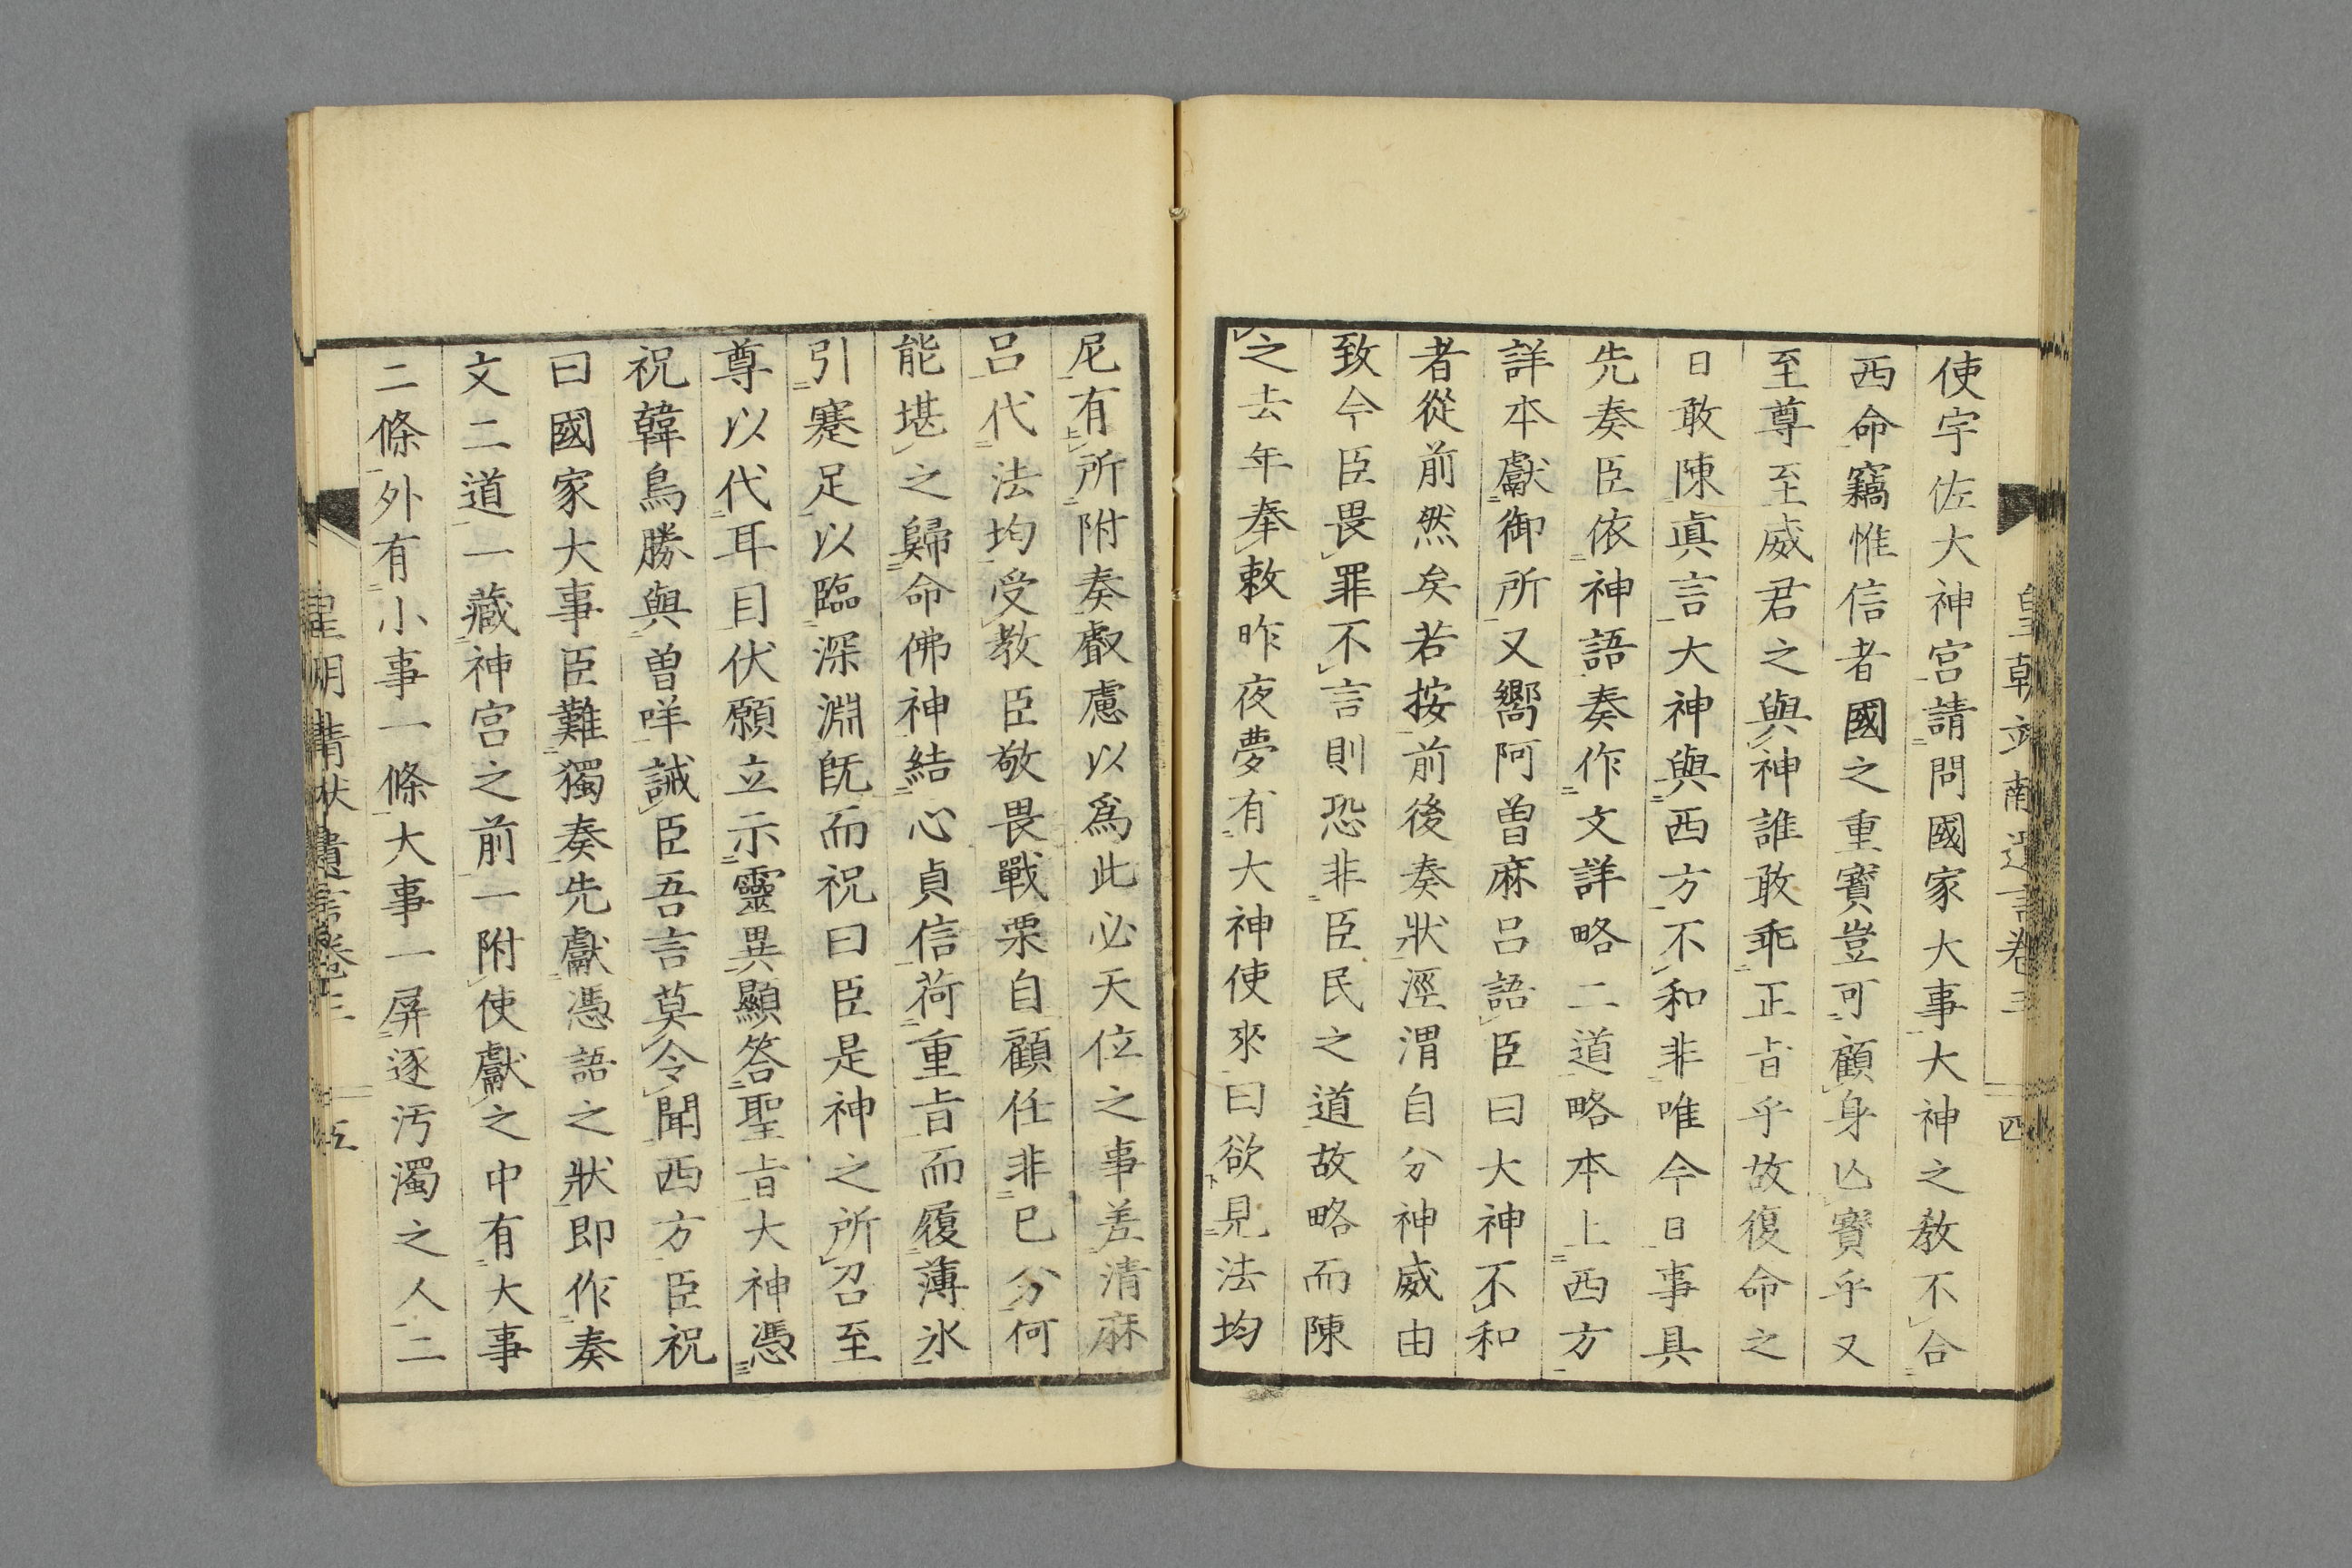 使宇佐大神宮請問國家大事大神之敎不合
西命竊惟信者國之重寳豈可顧身亾寳乎又
至尊至威君之與神誰敢乖正㫖乎故復命之
日敢陳眞言大神與西方不和非唯今日事具
先奏臣依神語奏作文詳略二道略本上西方
詳本獻御所又嚮阿曽麻呂語臣曰大神不和
者從前然矣若按前後奏狀涇渭自分神威由
致今臣畏罪不言則恐非臣民之道故略而陳
之去年奉敕昨夜夢有大神使來曰欲見法均
尼有所附奏叡慮以爲此必天位之事差清麻
呂代法均受教臣敬畏戰栗自顧任非已分何
能堪之歸命佛神結心貞信荷重㫖而履薄氷
引蹇足以臨深淵旣而祝曰臣是神之所召至
尊以代耳目伏願立示靈異顯答聖㫖大神憑
祝韓鳥勝與曽咩誡臣吾言莫令聞西方臣祝
曰國家大事臣難獨奏先獻憑語之狀即作奏
文二道一藏神宮之前一附使獻之中有大事
二條外有小事一條大事一屏逐汚濁之人二
四
五